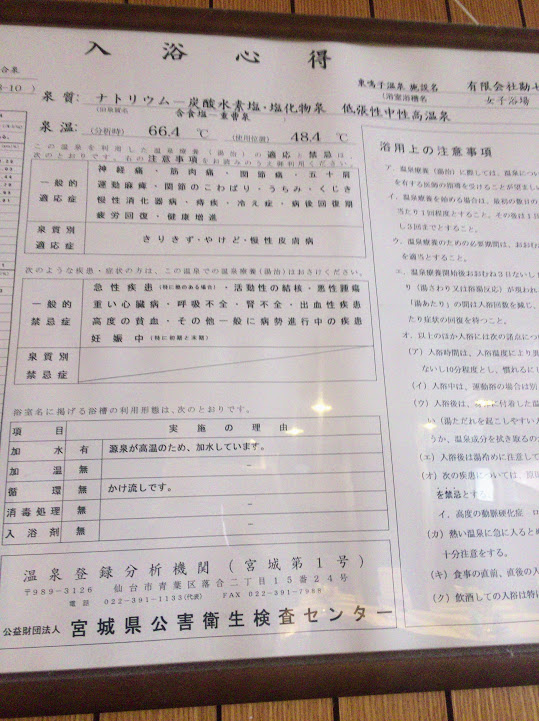 入浴心得
東鳴子温泉 施設名 有限会社勘七
(浴室浴槽名 女子浴場
泉質: ナトリウム―炭酸水素塩・塩化物泉 低張性中性高温泉
(旧泉質名 含食塩―重曹泉)
泉温: (分析時) 66.4 ℃ (使用位置) 48.4 ℃
この温泉を利用した温泉療養(湯治)の適応と禁忌は、
次のとおりです。右の注意事項をお読みのうえ御利用ください。
一般的適応症
神経痛・筋肉痛・関節痛・五十肩
運動麻痺・関節のこわばり・うちみ・くじき
慢性消化器病・痔疾・冷え症・病後回復期
疲労回復・健康増進
泉質別適応症
きりきず・やけど・慢性皮膚病
次のような疾患・症状の方は、この温泉での温泉療養(湯治)はおさけください。
一般的禁忌症
急性疾患(特に熱のある場合)・活動性の結核・悪性腫瘍
重い心臓病・呼吸不全・腎不全・出血性疾患
高度の貧血・その他一般に病勢進行中の疾患
妊娠中(特に初期と末期)
泉質別禁忌症
浴室名に掲げる浴槽の利用形態は、次のとおりです。
項目 実施の理由
加水 有 源泉が高温のため、加水しています。
加温 無 －
循環 無 かけ流しです。
消毒処理 無 －
入浴剤 無 －
温泉登録分析機関(宮城第1号)
〒989-3126 仙台市青葉区落合二丁目15番24号
電話 022-391-1133(代表) FAX 022-391-7988
公益財団法人 宮城県公害衛生検査センター
浴用上の注意事項
ア．温泉療養(湯治)に際しては、温泉につい
を有する医師の指導を受けることが望まし
イ．温泉療養を始める場合は、最初の数日の
当たり1回程度とすること。その後は1日
し3回までとすること。
ウ．温泉療養のための必要期間は、おおむ
を適当とすること。
エ．温泉療養開始後おおむね3日ないし
り(湯さわり又は浴湯反応)が現われ
「湯あたり」の間は入浴回数を減じ、
たり症状の回復を待つこと。
オ．以上のほか入浴には次の諸点につい
(ア)入浴時間は、入浴温度により異
ないし10分程度とし、慣れるに
(イ)入浴中は、運動浴の場合は別
(ウ)入浴後は、 に付着した温
(湯ただれを起こしやすい人
うか、温泉成分を拭き取るの
(エ)入浴後は湯冷めに注意して
(オ)次の疾患については、原則
を禁忌とする
イ．高度の動脈硬化症 ロ
(カ)熱い温泉に急に入ると
十分注意をする。
(キ)食事の直前、直後の入
(ク)飲酒しての入浴は特に